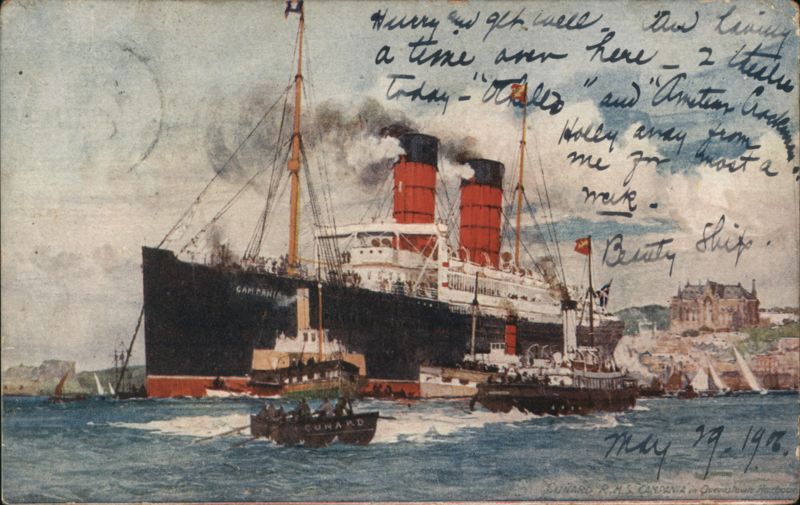 Hurry and get well. Am having
a time over here - 2 theatre
today - "Othello" and "Amateur Cracksman"
Holly away from
me for most a
week.
Beauty Ship.
CAMPANIA
CUNARD
May 29. 190
CUNARD R.M.S. CAMPANIA in Queenstown Harbour